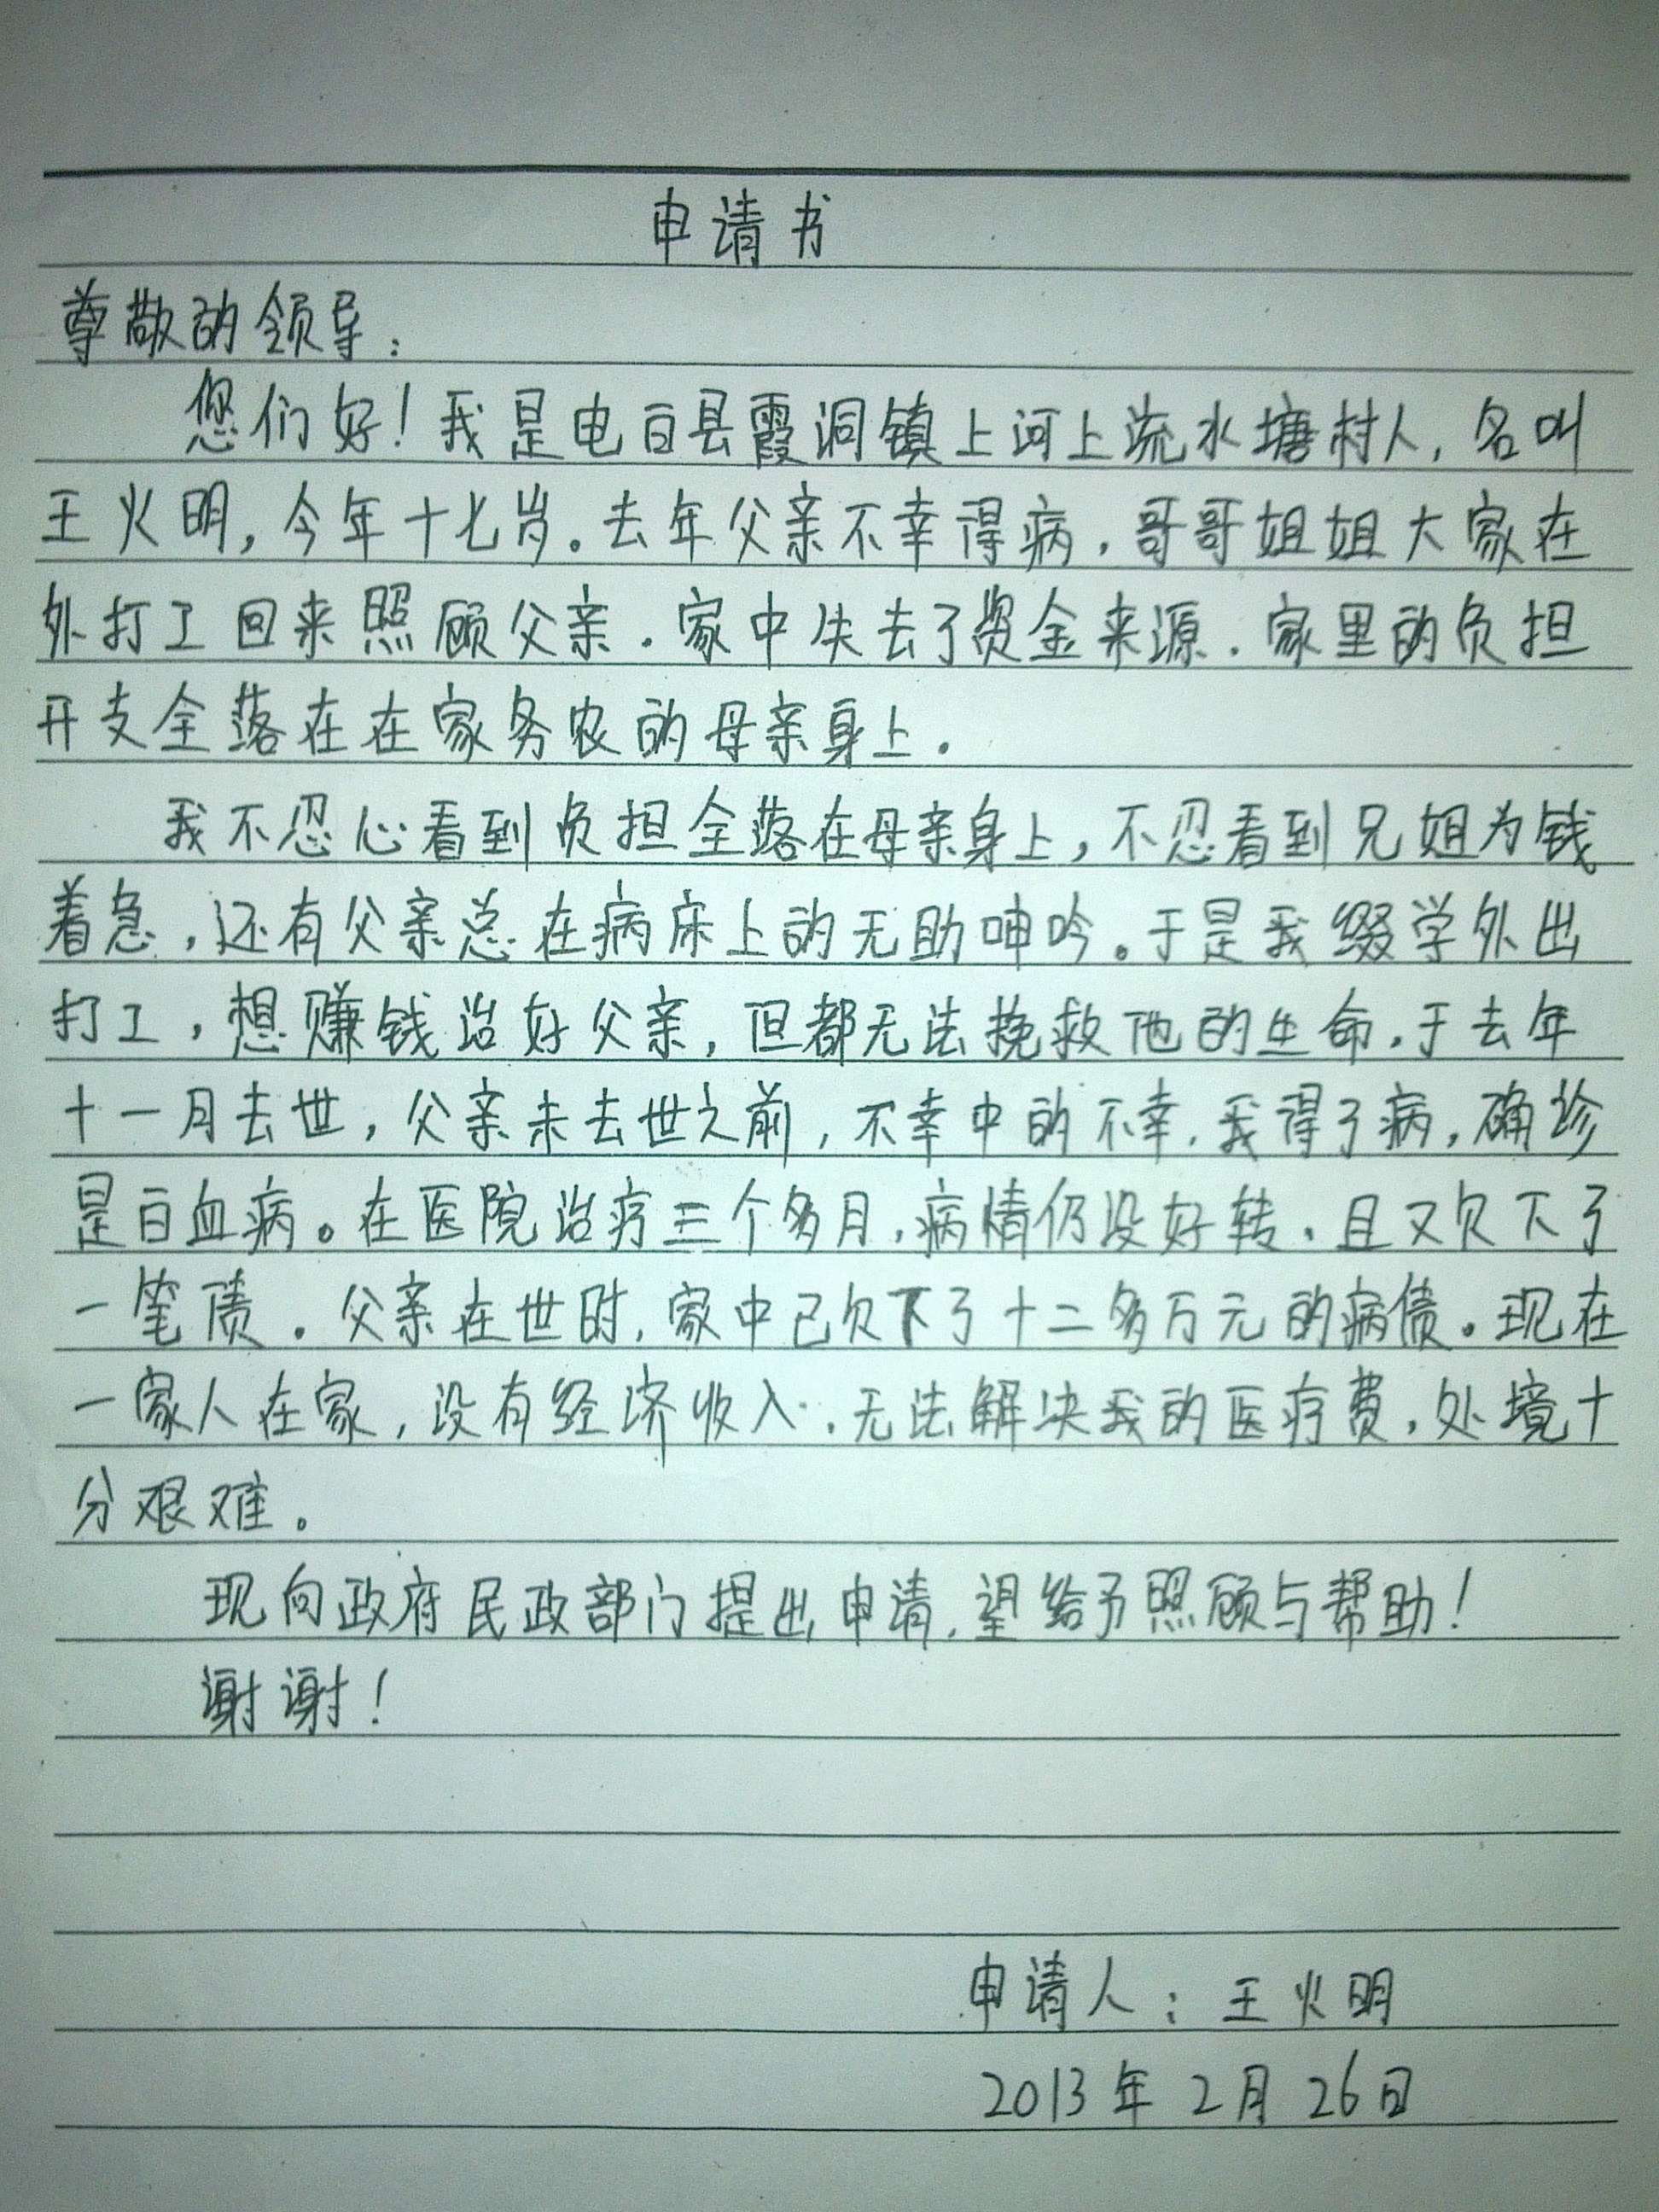 申请书
尊敬的领导：
您们好！我是电白县霞洞镇上河上流水塘村人，名叫
王火明，今年十七岁。去年父亲不幸得病，哥哥姐姐大家在
外打工回来照顾父亲．家中失去了资金来源．家里的负担
开支全落在在家务农的母亲身上．
我不忍心看到负担全落在母亲身上，不忍看到兄姐为钱
着急，还有父亲总在病床上的无助呻吟。于是我缀学外出
打工，想赚钱治好父亲，但都无法挽救他的生命．于去年
十一月去世，父亲未去世之前，不幸中的不幸．我得了病，确诊
是白血病。在医院治疗三个多月，病情仍没好转．且又欠下了
一笔债．父亲在世时，家中已欠下了十二多万元的病债。现在
一家人在家，没有经济收入．无法解决我的医疗费，处境十
分艰难。
现向政府民政部门提出申请，望给予照顾与帮助！
谢谢！
申请人：王火明
2013年2月26日